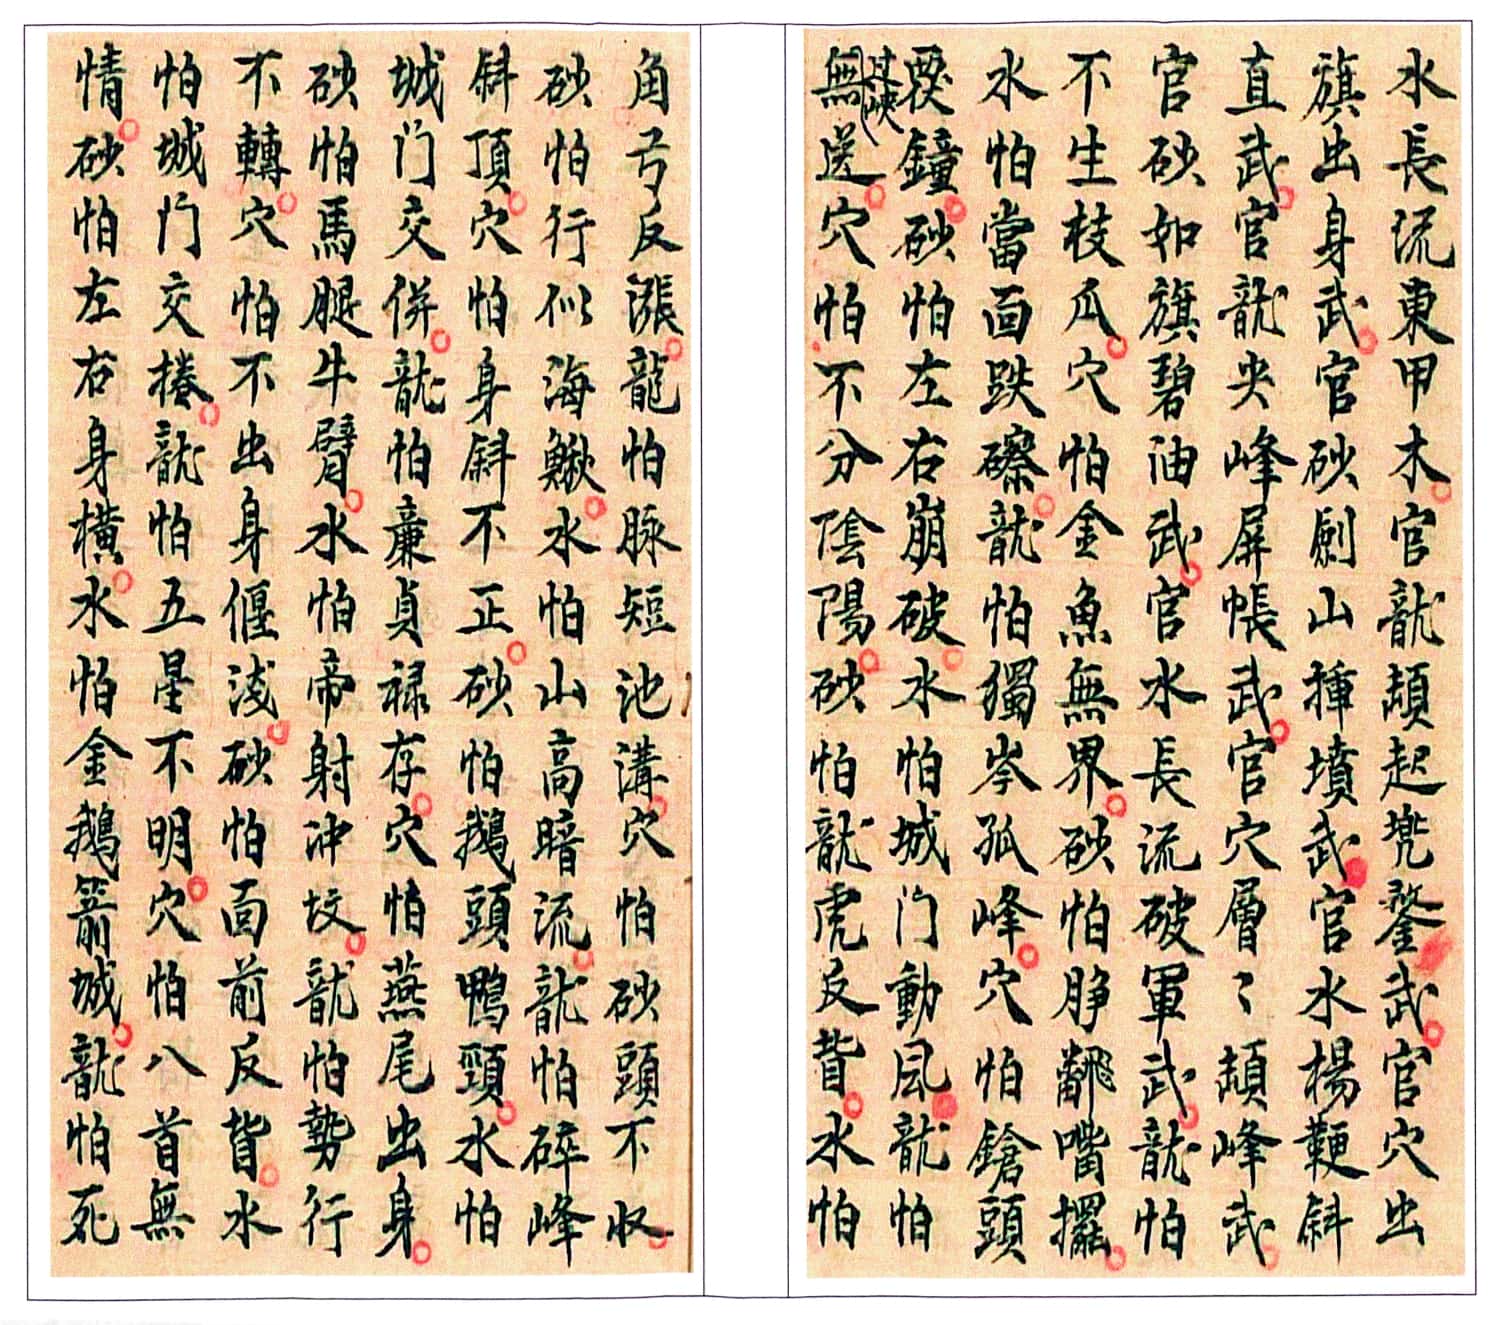 水長流東甲木官龍頡起兠鍪武官穴出
旗出身武官砂劍山揷墳武官水楊鞭斜
直武官龍央峰屏帳武官穴層〻頡峰武
官砂如旗碧油武官水長流破軍武龍怕
不生枝瓜穴怕金魚無界砂怕脖翻嘴擺
水怕當面跌磜龍怕獨岑孤峰穴怕鎗頭
覆鐘砂怕左右崩破水怕城门動風龍怕
過峽
無送穴怕不分陰陽砂怕龍虎反背水怕
角弓反張龍怕脉短池溝穴怕砂頭不収
砂怕行似海鰍水怕山高暗流龍怕碎峰
斜頂穴怕身斜不正砂怕鵝頭鴨頸水怕
城门交併龍怕亷貞禄存穴怕燕尾出身
砂怕馬腿牛臂水怕帝射沖坟龍怕勢行
不轉穴怕不出身偃淺砂怕面前反背水
怕城门交捲龍怕五星不明穴怕八首無
情砂怕左右身橫水怕金鵝箭城龍怕死